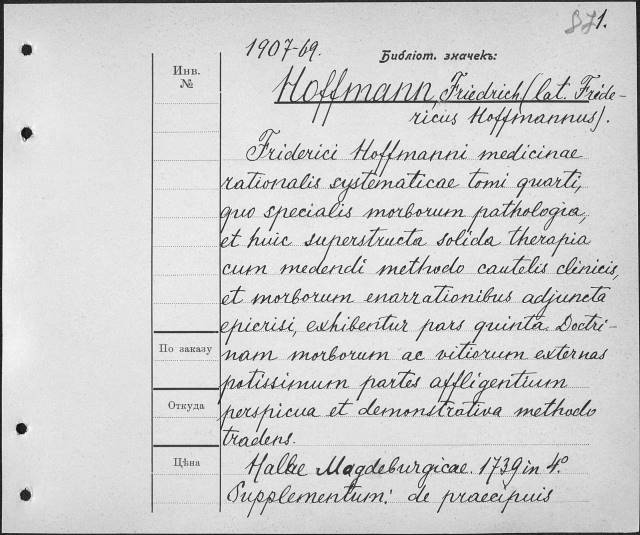 871.
1907-69.
Библіот. значекъ:
Инв.
№
Hoffmann, Friedrich (lat. Fride-
ricus Hoffmannus).
Friderici Hoffmanni medicinae
rationalis systematicae tomi quarti,
quo specialis morborum pathologia,
et huic superstructa solida therapia
cum medendi methodo cautelis clinicis,
et morborum enarrationibus adjuncta
epicrisi, exhibentur pars quinta. Doctri-
nam morborum ac vitiorum externas
potissimum partes affligentium
perspicua et demonstrativa methodo
tradens.
Halae Magdeburgicae. 1739 in 4°
Supplementum: de praecipuis
По заказу
Откуда
Цѣна